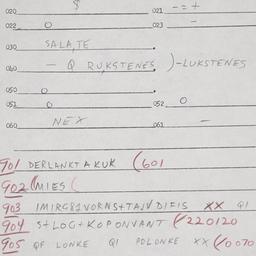 020 $ 021 - = +
022 0 023 -
030 SALA,TE
040 - Q RUKSTENES )-LUKSTENES
050 0
051 0 052 0
060 NEX 061 -
901 DERLANKT A KUK (601
902 (MIES (
903 IMIRG81VORNS+TAJV DIFIS XX QI
904 S+LOG+KOPONVANT (220120
905 QF LONKE QI POLONKE XX (/0070